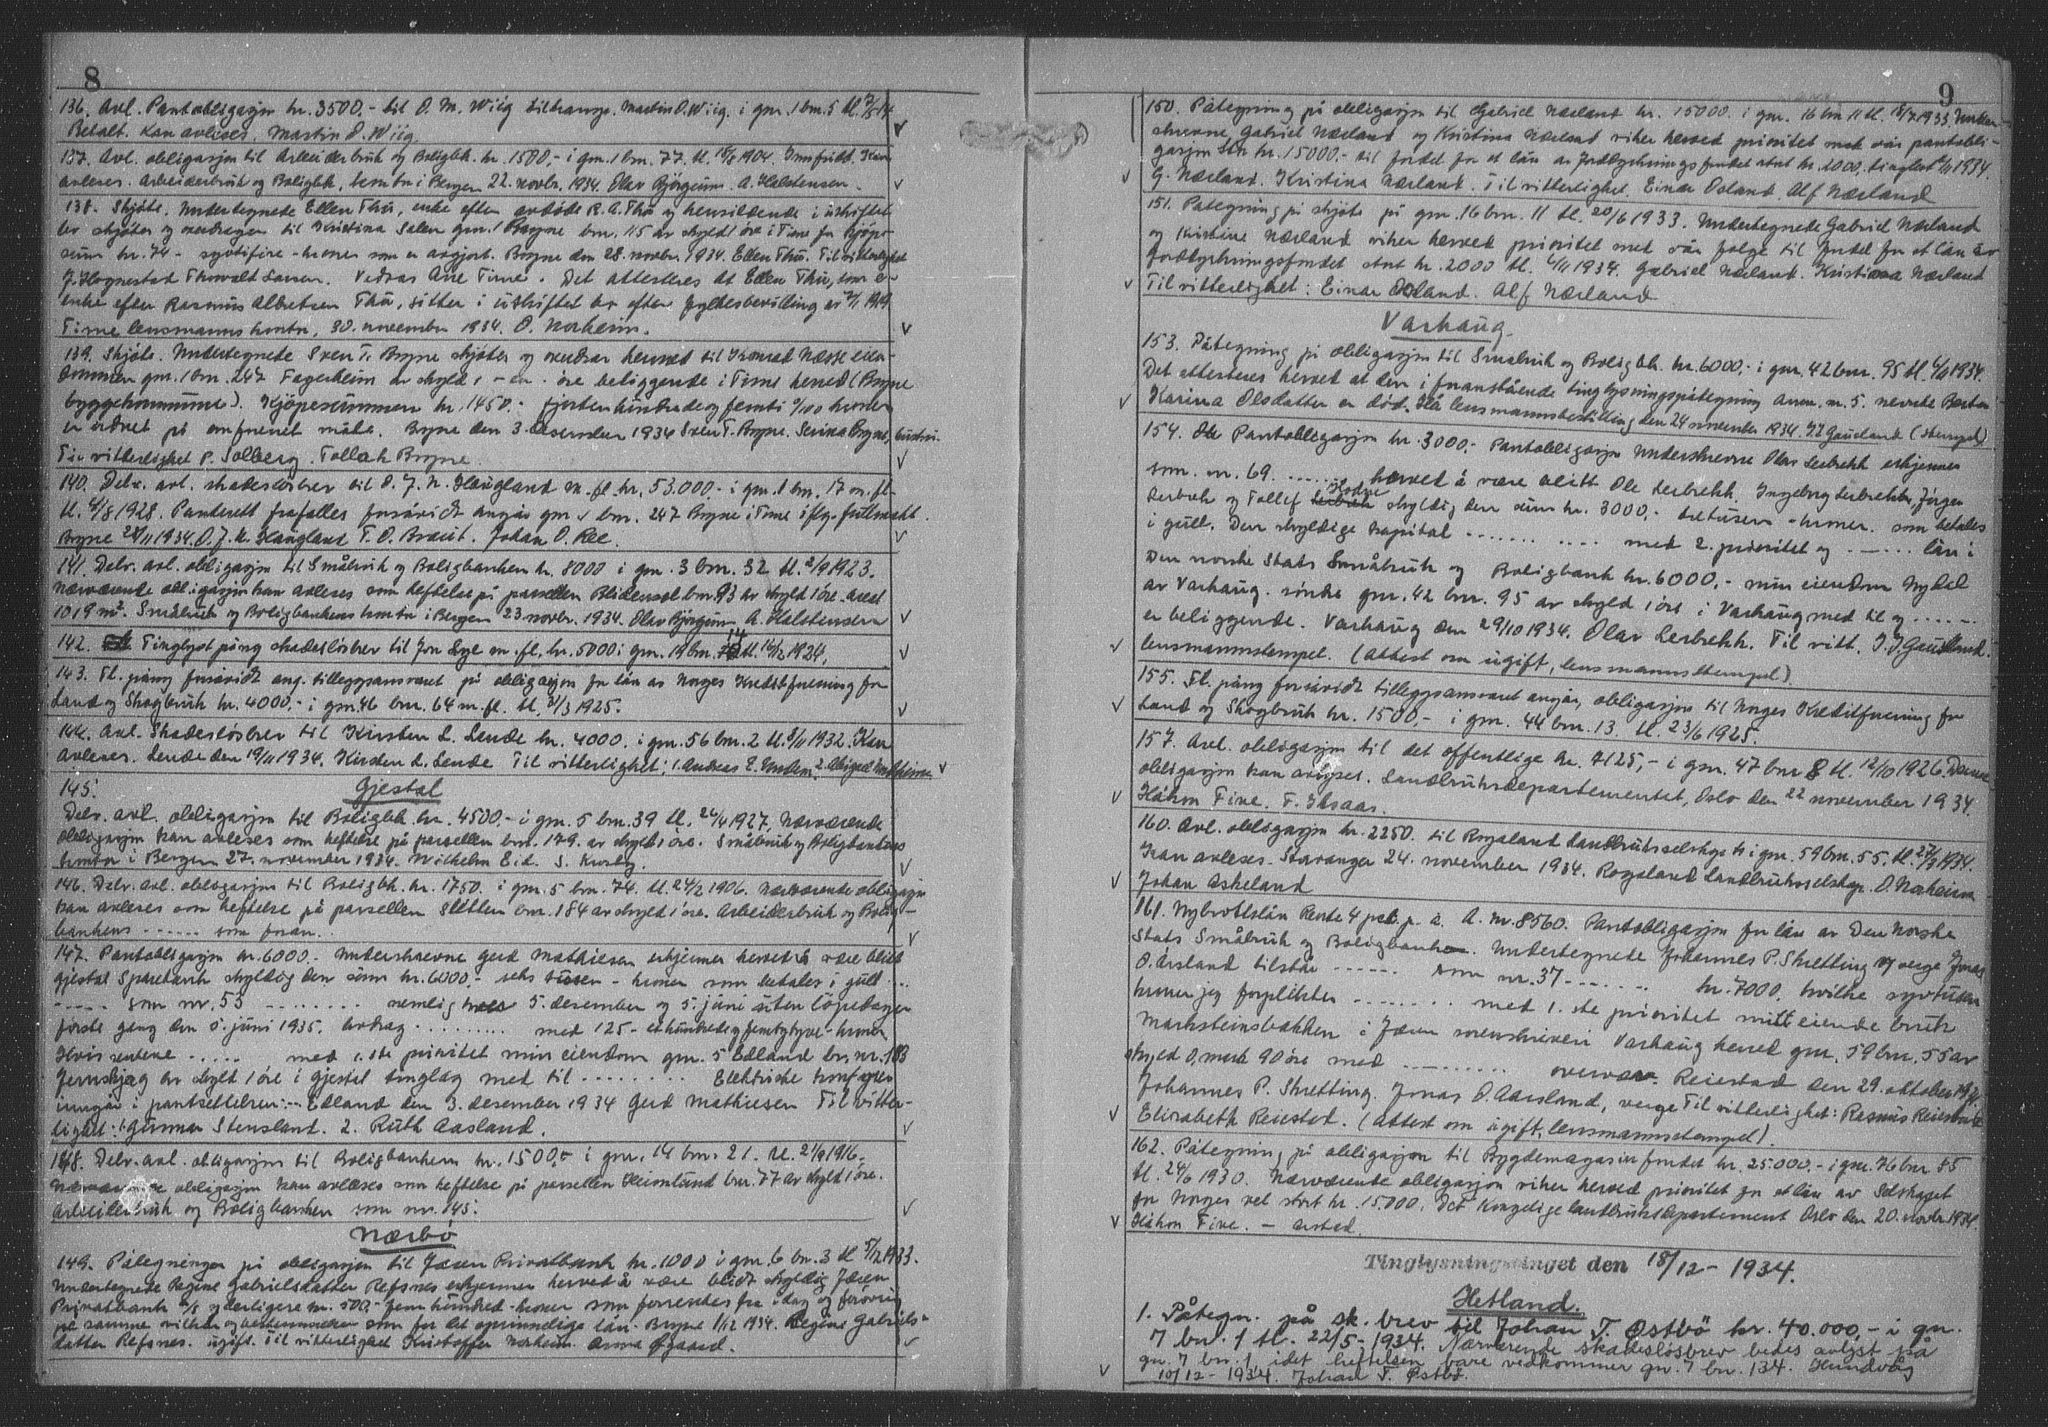 8
136. Avl. Pantobligasjon kr. 3500.- til O. M. Wiig tilbrange. Martin O. Wiig. i gnr. 1 bnr. 5 tl.
Betalt. Kan avlises. Martin O. Wiig.
137. Avl. obligasjon til Arbeiderbruk og Boligbk. kr. 1500,- i gnr. 1 bnr. 77. tl. 15/8 1904. Innfridd. Kan
avleses. Arbeiderbruk og Boligbk, kontor i Bergen 22. novbr. 1934. Olav Bjørgum. A. Halstensen.
138. Skjöte. Undertegnede Ellen Thu, enke efter avdöde R. A. Thu og hensiddende i uskiftet
bo skjöter og overdrager til Kristina Salen gnr. 1 Bryne bnr. 115 av skyld 1 öre i Time for kjöpe-
sum kr. 74 - syttifire - kroner som er avgjort. Bryne den 28. novbr. 1934. Ellen Thu. Til vitterlighet
J. Hognestad Thorvald Larsen. Vedras Arie Time. Det attesteres at Ellen Thu, som er
enke efter Rasmus Albretsen Thu, sitter i uskiftet bo efter fylkesbevilling av
Time lensmannskontor, 30. november 1934. O. Norheim.
139. Skjöte. Undertegnede Sven T. Bryne skjöter og overdrar herved til Konrad Næsse eien-
dommen gnr. 1 bnr. 247 Fagerheim av skyld 1 - en - öre beliggende i Time herred (Bryne
byggekommune). Kjöpesummen kr. 1450.- fjortenhundrede og femti 0/00 kroner
er ordnet på omforenet måte. Bryne den 3. desember 1934 Sven T. Bryne. Serina Bryne, hustru.
Til vitterlighet P. Solberg. Tollak Bryne.
140. Delv. avl. skadeslösbrev til O. J. N. Haugland m. fl. kr. 53.000.- i gnr. 1 bnr. 17 m. fl.
tl. 4/8 1928. Panterett frafalles forsåvidt angår gnr. 1 bnr. 247 Bryne i Time iflg. fullmakt.
Bryne 28/11 1934. O. J. N. Haugland T. O. Braut. Johan O. Ree.
141. Delv. avl. obligasjon til Småbruk og Boligbanken kr. 8000 i gnr. 3 bnr. 32 tl. 2/9 1923.
Nærværende obligasjon kan avleses som heftelse på parsellen Blidensol bnr. 93 av skyld 1 öre. areal
1019 m². Småbruk og Boligbankens kontor i Bergen 23. novbr. 1934. Olav Bjørgum A. Halstensen
142. Tinglyst påteg skadeslösbrev til Jon Lye m. fl. kr. 5000 i gnr. 19 bnr. 14 tl. 16/12 1924.
143. Tl. påteg forsåvidt ang. tilleggsansvaret på obligasjon for lån av Norges Kredittforening for
Land og Skogbruk kr. 4000,- i gnr. 46 bnr. 64 m. fl. tl. 31/3 1925.
144. Avl. Skadeslösbrev til Kirsten L. Lende kr. 4000. i gnr. 56 bnr. 2 tl. 8/11 1932. Kan
avleses. Lende den 19/11 1934. Kirsten L. Lende Til vitterlighet: 1. Andreas E. Undem.
Gjestal
145.
Delv. avl. obligasjon til Boligbk kr. 4500.- i gnr. 5 bnr. 39 tl. 26/4 1927. Nærværende
obligasjon kan avleses som heftelse på parsellen bnr. 179. av skyld 1 öre. Småbruk og Boligbankens
kontor i Bergen 27. november 1934. Wilhelm Eid. S. Krosby.
146. Delv. avl. obligasjon til Boligbk. kr. 1750. i gnr. 5 bnr. 74. tl. 24/2 1906. Nærværende obligasjon
kan avleses som heftelse på parsellen Sletten bnr. 184 av skyld 1 öre. Arbeiderbruk og Bolig-
bankens ...... som foran..
147. Pantobligasjon kr. 6000.- Underskrevne Gerd Mathiesen erkjenner herved å være blitt
Gjestal Sparebank skyldig den sum kr. 6000,- seks tusen - kroner som betales i gull ....
..... som nr. 53 ........ nemlig hver 5. desember og 5. juni uten löpedager
förste gang den 5. juni 1935. Avdrag ......... med 125 - ethundredeogfemogtyve - kroner
Hvis rentene ..... med 1. ste prioritet min eiendom gnr. 5 Edland br. nr. 183
Jernskjag av skyld 1 öre i Gjestal tinglag med til ........ Elektriske komfyrer
inngår i pantsettelsen: - Edland den 3. desember 1934 Gerd Mathiesen Til vitter-
lighet: 1. Gunnar Stensland. 2. Ruth Aasland.
148. Delv. avl. obligasjon til Boligbanken kr. 1500,- i gnr. 14 bnr. 21. tl. 21/9 1916.
Nærværende obligasjon kan avleses som heftelse på parsellen Heimlund bnr. 77 av skyld 1 öre.
Arbeiderbruk og Boligbanken som nr. 145.
Nærbö
149. Påtegningen på obligasjon til Jæren Privatbank kr. 1000 i gnr. 6 bnr. 3 tl 5/12 1933.
Undertegnede Regine Gabrielsdatter Refsnes erkjenner herved å være blidt skyldig Jæren
Privatbank A/S yderligere kr. 500,- fem hundred - kroner som forrentes fra idag og forövrig
på samme vilkår og bestemmelser som for det oprinnelige lån. Bryne 1/12 1934. Regine Gabriels-
datter Refsnes. ugift. Til vitterlighet Kristoffer Norheim. Anna Ogaard.
9
150. Påtegning på obligasjon til Gabriel Nærland kr. 15000. i gnr. 16 bnr 11 tl. 18/7 1933 Under-
skrevne, Gabriel Nærland og Kristina Nærland viker herved prioritet med vår pantobli-
gasjon stor kr. 15000.- til fordel for et lån av Jorddyrkningsfondet stort kr. 2000, tinglest 6/11 1934.
G. Nærland. Kristina Nærland. Til vitterlighet. Einar Osland. Alf Nærland
151. Påtegning på skjöte på gnr. 16 bnr. 11 tl. 20/6 1933. Undertegnede Gabriel Nærland
og Kristine Nærland viker herved prioritet med vår folge til fordel for et lån av
Jorddyrkningsfondet stort kr. 2000 tl. 6/11 1934. Gabriel Nærland. Kristiana Nærland
Til vitterlighet: Einar Osland. Alf Nærland.
Varhaug.
153. Påtegning på obligasjon til Småbruk og Boligbk. kr. 6000,- i gnr. 42 bnr. 95 tl. 6/11 1934.
Det attesteres herved at den i foranstående tinglysningspåtegning Anm. nr. 5. nevnte Berta
Karina Olsdatter er död. Hå lensmannsbestilling den 24 november 1934. I. I. Gausland (stempel)
154. Pantobligasjon kr. 3000.- Pantobligasjon Underskrevne Olav Lerbrekk erkjenner
som. nr. 69. ........ herved å være blitt Ole Lerbrekk. Ingeborg Lerbrekk, Jörgen
Lerbrek og Tollef Hodne skyldig den sum kr. 3000,- tretusen - kroner. som betales
i gull. Den skyldige kapital ........ med 2. prioritet og ...... lån i
Den norske Stats Småbruk og Boligbank kr. 6000,- min eiendom Nydal
av Varhaug. söndre gnr. 42 bnr. 95 av skyld 1 öre i Varhaug med til og ......
er beliggende. Varhaug den 29/10 1934. Olav Lerbrekk. Til vitt. I. I. Gausland.
lensmannstempel. (Attest om ugift, lensmannsstempel)
155. Tl. påteg forsåvidt tilleggsansvaret angår, obligasjon til Norges Kreditforening for
Land og Skogbruk kr. 1500,- i gnr. 44 bnr. 13. tl. 23/6 1925.
157. Avl. obligasjon til det offentlige kr. 7125,- i gnr. 47 bnr 8 tl. 12/10 1926. Denne
obligasjon kan avlyses. Landbruksdepartementet, Oslo den 22 november 1934.
Håkon Five. F. Isaas.
160. Avl. obligasjon kr. 2250. til Rogaland Landbruksselskap i gnr. 59 bnr. 55. tl. 27/3 1934.
Kan avleses. Stavanger 24. november 1934. Rogaland Landbruksselskap. O. Norheim
Johan Askeland
161. Nybrottslån Rente 4 pct. p. a. A. nr. 8560. Pantobligasjon for lån av Den Norske
Stats Småbruk og Boligbank. Undertegnede Johannes P. Skretting og verge Jonas
O. Årsland tilstår ...... som nr. 37 ....... kr. 7000. hvilke syvtusen
kroner jeg forplikter ........ med 1. ste prioritet mitt eiende bruk
Marksteinsbakken i Jæren sorenskriveri Varhaug herred gnr. 59 bnr. 55 av
skyld 0, mark 90 öre med ......... overvar. Reiestad den 29. oktober 1934
Johannes P. Skretting. Jonas O. Aarsland, verge Til vitterlighet: Rasmus Reiestad
Elisabeth Reiestad. (Attest om ugift, lensmannsstempel).
162. Påtegning på obligasjon til Bygdemagasinfondet kr. 25.000.- i gnr. 76 bnr 85
tl. 24/6 1930. Nærværende obligasjon viker herved prioritet for et lån av Selskapet
for Norges vel stort kr. 15.000. Det Kongelige landbruksdepartement Oslo den 20. novbr 1934
Håkon Five. - Arstad.
Tinglysningstinget den 18/12 - 1934.
Hetland.
1. Påtegn. på sk. brev til Johan T. Østbö kr. 40.000,- i gn.
7 bn. 1 tl. 22/5 - 1934. Nærværende skadeslösbrev bedes avlyst på
gn. 7 bn. 1, idet heftelsen bare vedkommer gn. 7 bn. 134. Hundvåg
10/12 - 1934. Johan T. Østbö.